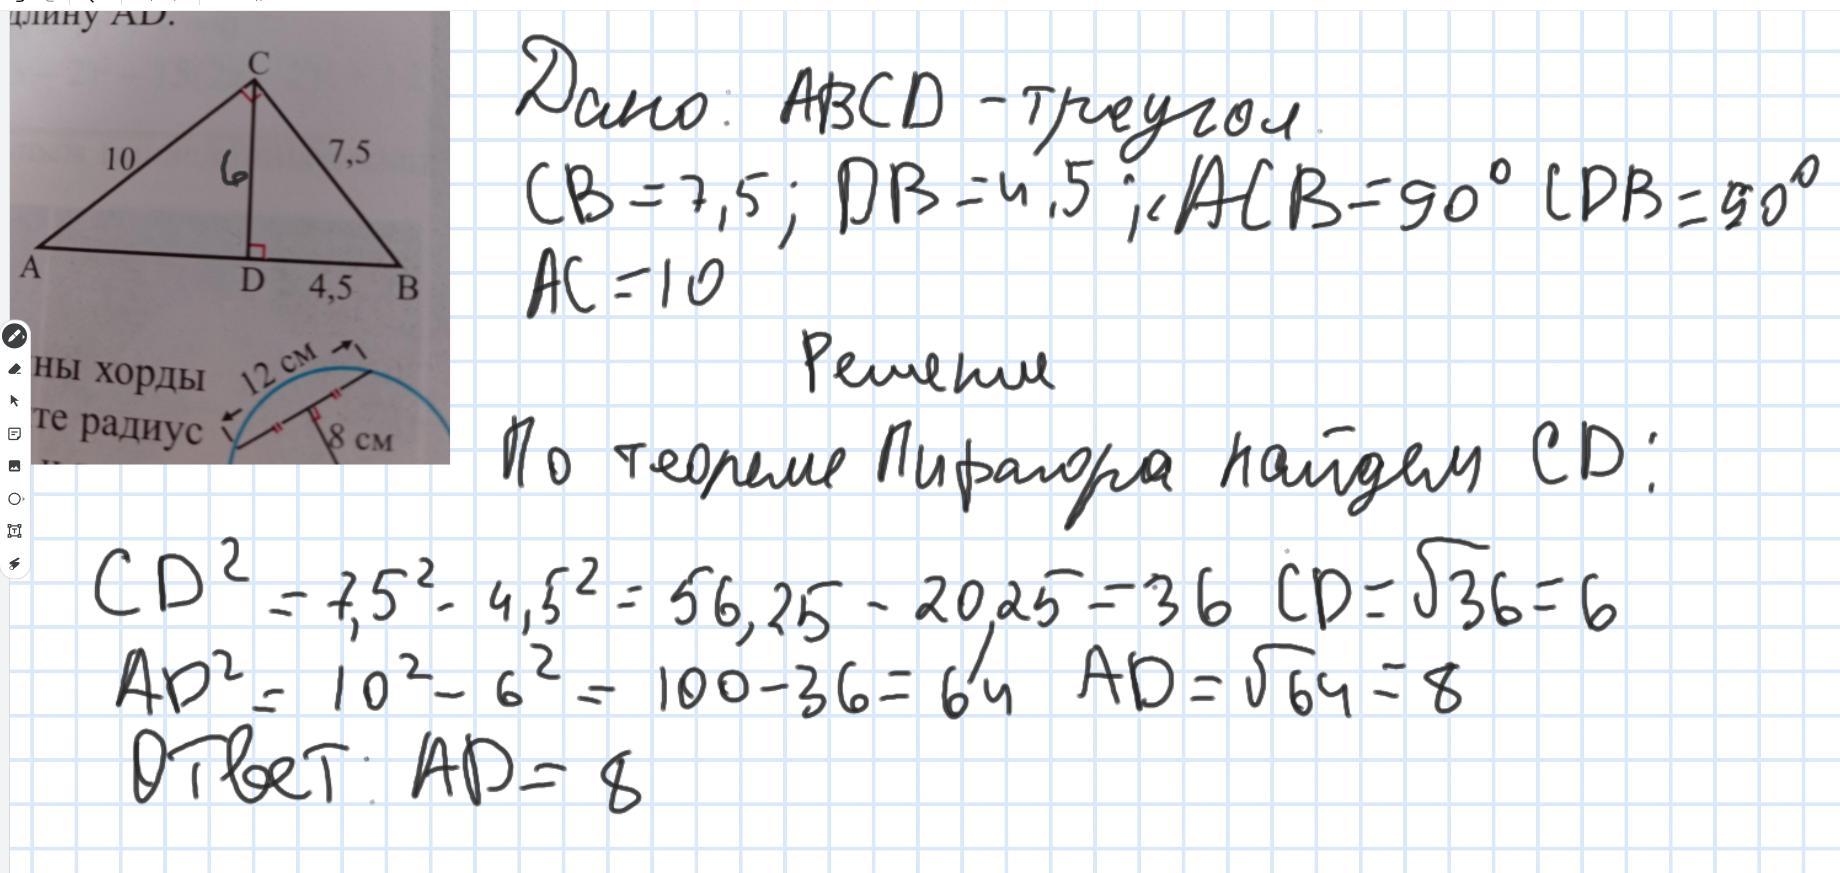 длину AD.
C
10
6
7,5
A
D
4,5
B
ны хорды
12 см
те радиус
8 см
Дано: ABCD - треугол.
CB = 7,5; DB = 4,5; < ACB = 90° CDB = 90°
AC = 10
Решение
По теореме Пифагора найдем CD:
CD² = 7,5² - 4,5² = 56,25 - 20,25 = 36 CD = √36 = 6
AD² = 10² - 6² = 100 - 36 = 64 AD = √64 = 8
Ответ: AD = 8